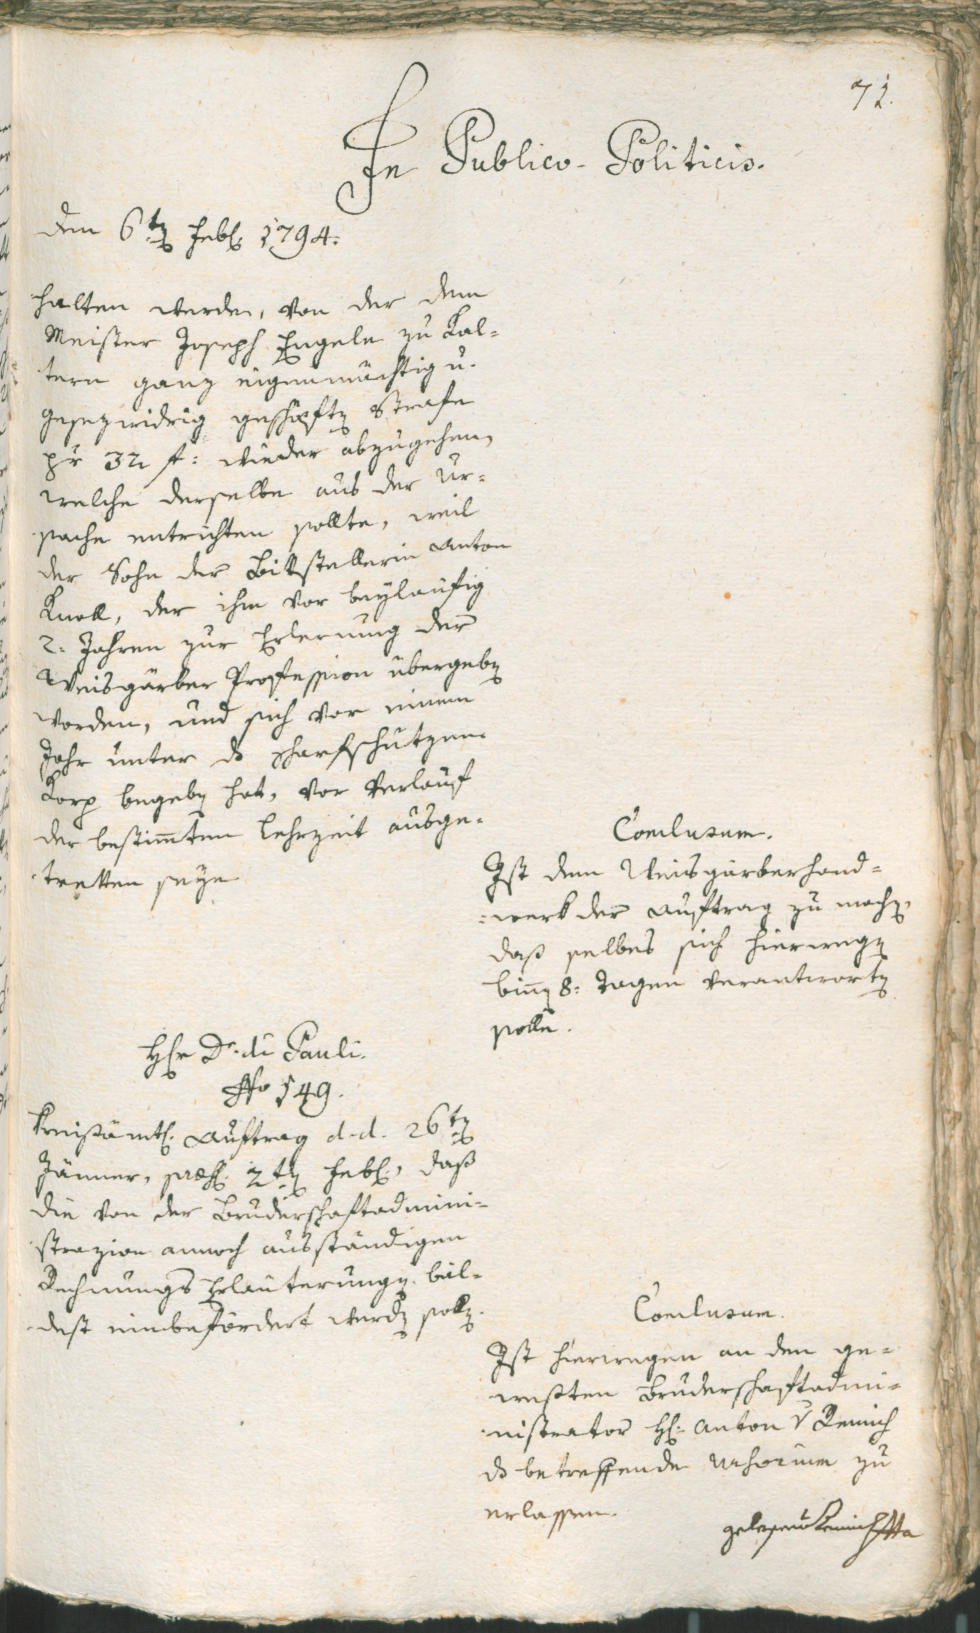 72.
In Publico-Politicis.
Den 6ten Febr. 1794.
halten werde, von der dem
Meister Joseph Engele zu Kal-
tern ganz eigenmächtig u.
gesezwidrig geschöpften Strafe
pr 32 f: wieder abzugehen,
welche derselbe aus der Ur-
sache entrichten sollte, weil
der Sohn der Bittstellerin Anton
Knoll, der ihm vor beyläufig
2. Jahren zur Erlernung der
Weisgärber Profession übergeben
worden, und sich vor einem
Jahr unter das Scharfschützen-
Korp begeben hat, vor Verlauf
der bestimten Lehrzeit ausge-
tretten seye
Conclusum.
Ist dem Weisgärberhand-
werk der Auftrag zu machen,
daß selbes sich hierwegen
binnen 8. Tagen verantworten
solle.
Herr Dr. di Pauli.
No 149.
Kreisämtl. Auftrag d.d. 26ten
Jänner, præs. 2ten Febr., daß
die von der Bruderschaftadmini-
strazion annoch ausständigen
Rechnungs Erläuterungen bäl-
dest einbefördert werden sollen.
Conclusum.
Ist hierwegen an den ge-
westen Bruderschaftadmi-
nistrator H: Anton v Remich
das betreffende Mehorium zu
erlassen.
gelesen Remich